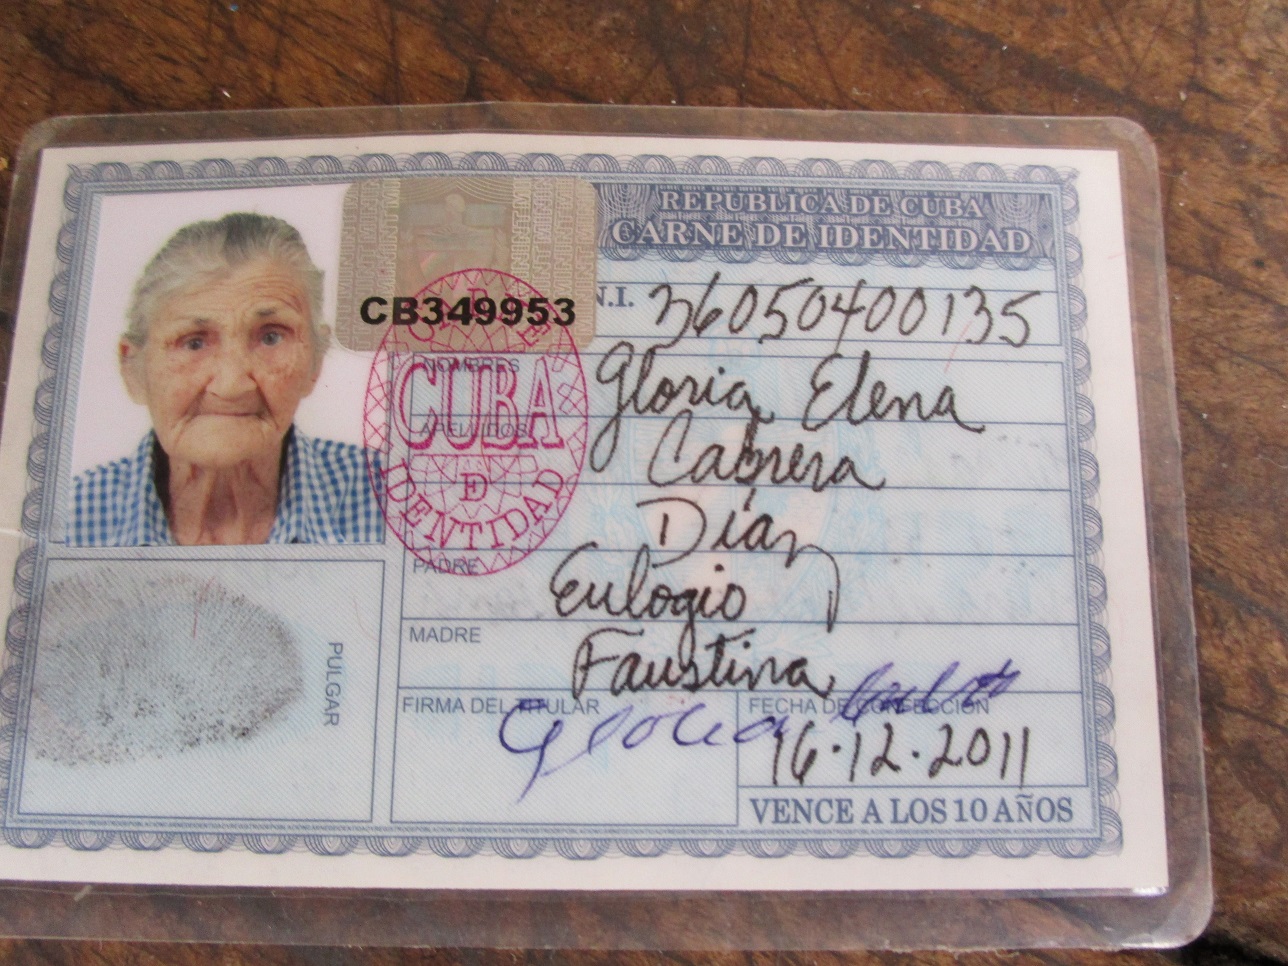 REPUBLICA DE CUBA
CARNE DE IDENTIDAD
CB349953
N.I. 36050400135
NOMBRES Gloria Elena
CUBA
APELLIDOS Cabrera
DE
IDENTIDAD
Díaz
PADRE Eulogio
MADRE Faustina
PULGAR
FIRMA DEL TITULAR
Gloria
FECHA DE CONFECCIÓN
16.12.2011
VENCE A LOS 10 AÑOS